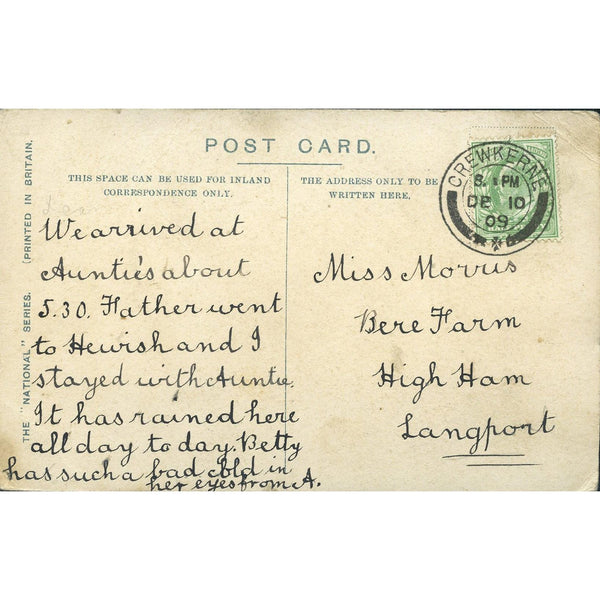 POST CARD.
THIS SPACE CAN BE USED FOR INLAND
CORRESPONDENCE ONLY.
THE ADDRESS ONLY TO BE
WRITTEN HERE.
THE "NATIONAL" SERIES. (PRINTED IN BRITAIN.
CREWKERNE
PM
DE 10
09
We arrived at
Auntie's about
5.30. Father went
to Hewish and I
stayed with Auntie.
It has rained here
all day to day. Betty
has such a bad cold in
her eyes from A.
Miss Morris
Bere Farm
High Ham
Langport